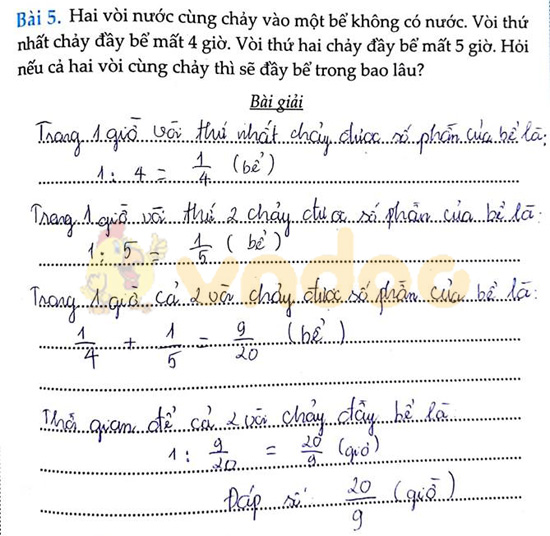 Bài 5. Hai vòi nước cùng chảy vào một bể không có nước. Vòi thứ
nhất chảy đầy bể mất 4 giờ. Vòi thứ hai chảy đầy bể mất 5 giờ. Hỏi
nếu cả hai vòi cùng chảy thì sẽ đầy bể trong bao lâu?
Bài giải
Trong 1 giờ vòi thứ nhất chảy được số phần của bể là:
1 : 4 = 1/4 (bể)
Trong 1 giờ vòi thứ 2 chảy được số phần của bể là:
1 : 5 = 1/5 (bể)
Trong 1 giờ cả 2 vòi chảy được số phần của bể là:
1/4 + 1/5 = 9/20 (bể)
Thời gian để cả 2 vòi chảy đầy bể là
1 : 9/20 = 20/9 (giờ)
Đáp số: 20/9 (giờ)
vndoc